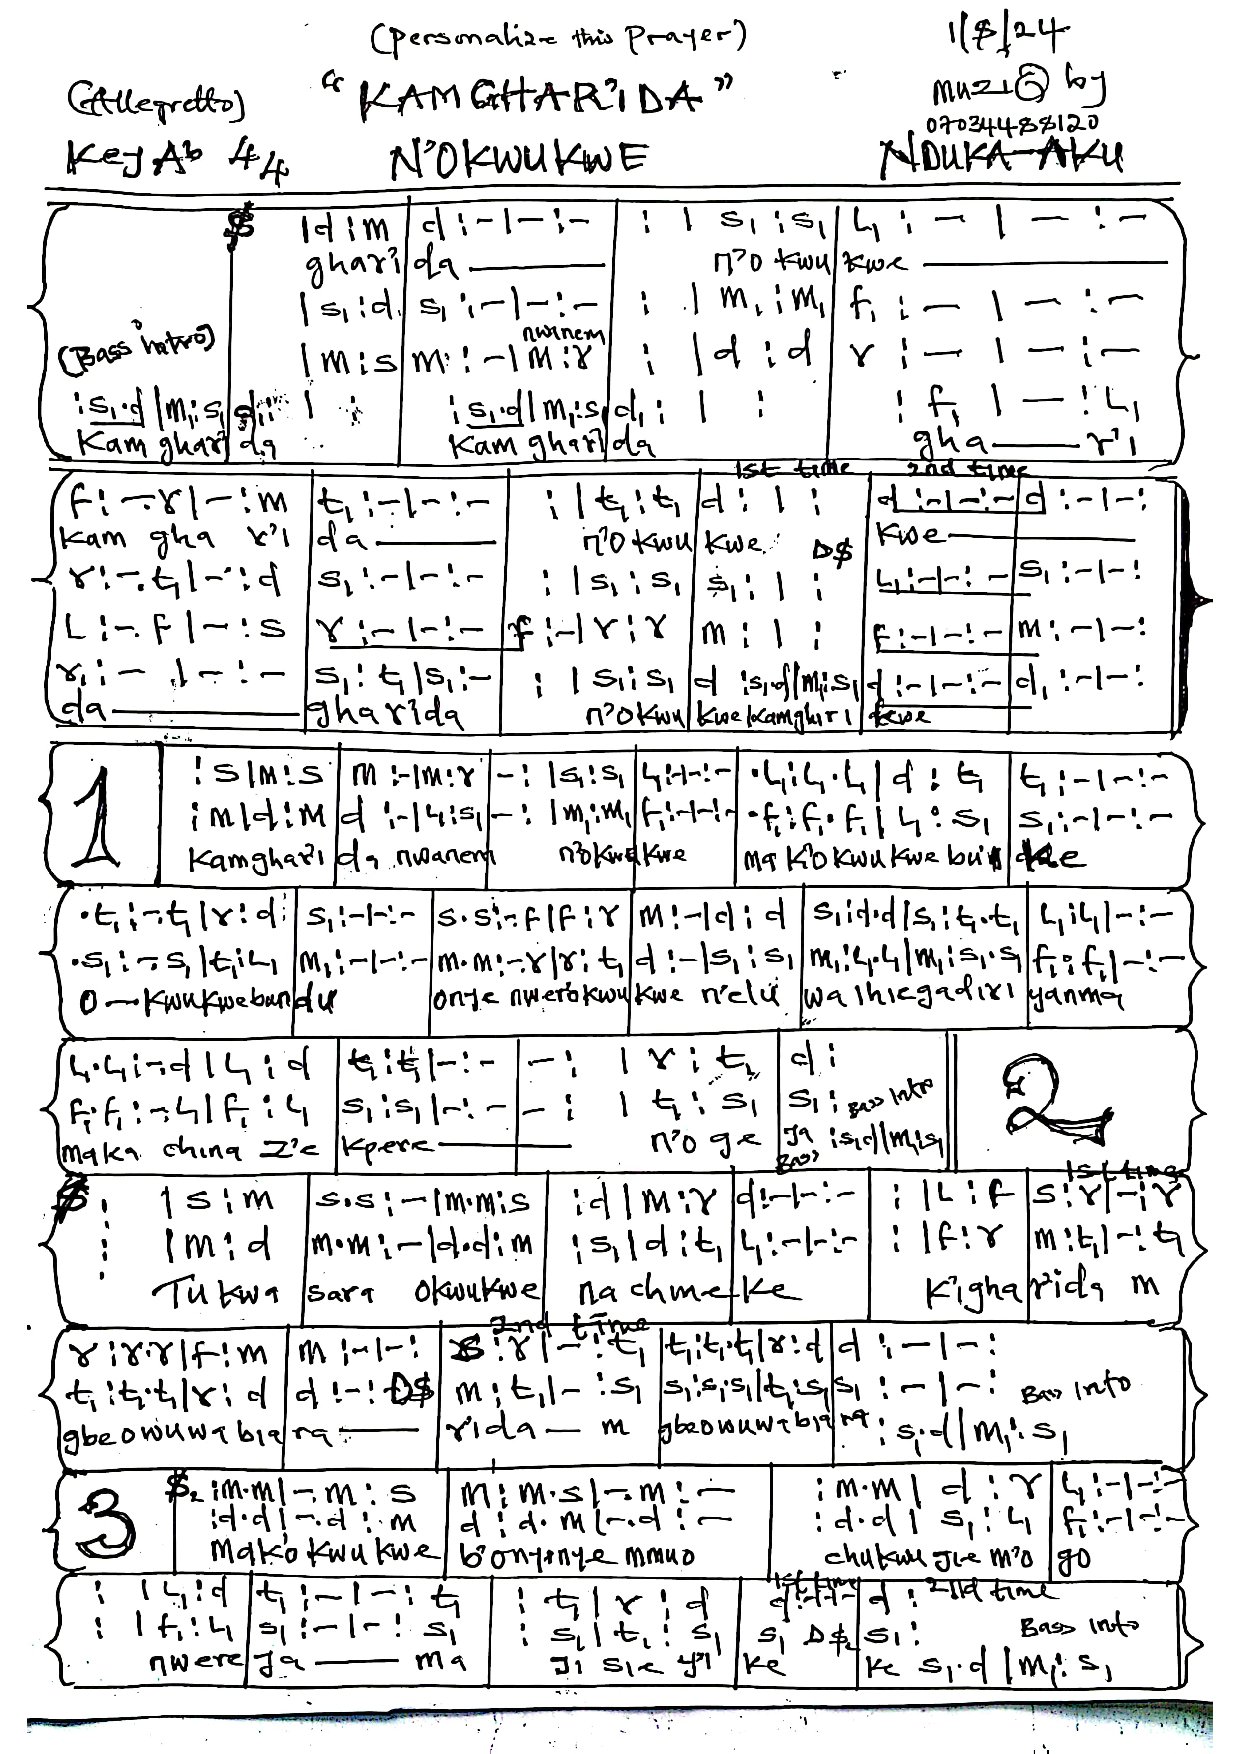 (Personalize this Prayer) 1/8/24
(Allegretto) "KAMGHAR'IDA" muzi© by
07034488120
Key Ab 4/4 N'OKWUKWE NDUKA-AKU
|d:m d:-|-:- : | s₁:s₁ L₁:-|-:-
ghar'i da n'o kwu kwe
|s₁:d s₁:-|-:- : | m₁:m₁ f₁:-|-:-
nwanem
(Bass intro) |m:s m:-|m:r : |d:d r:-|-:-
:s₁.d|m₁:s₁ d₁: | : :s₁.d|m₁:s₁ d₁: | : :f₁|-:L₁
Kam ghar'i da Kam ghar'i da gha r'i
1st time 2nd time
f:-.r|-:m t₁:-|-:- : |t₁:t₁ d:|: d:-|-:- d:-|-:
Kam gha r'i da n'o kwu kwe D$ kwe
r:-.t₁|-:d s₁:-|-:- : |s₁:s₁ s₁:|: L₁:-|-:- s₁:-|-:
L:-.f|-:s r:-|-:- f:-|r:r m:|: f:-|-:- m:-|-:
r₁:-|-:- s₁:t₁|s₁:- : |s₁:s₁ d :s₁.d|m₁:s₁ d:-|-:- d₁:-|-:
da ghar'ida n'okwu kwe kamghar'i kwe
1 :s|m:s m:-|m:r -:|s₁:s₁ L₁:-|-:- .L₁:L₁.L₁|d:t₁ t₁:-|-:-
:m|d:m d:-|L₁:s₁ -:|m₁:m₁ f₁:-|-:- .f₁:f₁.f₁|L₁:s₁ s₁:-|-:-
kamghar'i da nwanem n'okwukwe ma k'okwukwe bu ke
.t₁:-.t₁|r:d s₁:-|-:- s.s:-.f|f:r m:-|d:d s₁:d.d|s₁:t₁.t₁ L₁:L₁|-:-
.s₁:-.s₁|t₁:L₁ m₁:-|-:- m.m:-.r|r:t₁ d:-|s₁:s₁ m₁:L₁.L₁|m₁:s₁.s₁ f₁:f₁|-:-
O-kwukwebundu onye nwer'okwukwe n'elu wa ihiegadiri yanma
L₁.L₁:-.d|L₁:d t₁:t₁|-:- -:|r:t₁ d:
f₁.f₁:-.L₁|f₁:L₁ s₁:s₁|-:- -:|t₁:s₁ s₁: Bass intro 2
maka china z'e kpere n'oge Ja :s₁.d|m₁:s₁
Bass
1st time
$ : |s:m s.s:-|m.m:s :d|m:r d:-|-:- : |L:f s:r|-:r
: |m:d m.m:-|d.d:m :s₁|d:t₁ L₁:-|-:- : |f:r m:t₁|-:t₁
Tukwa sara okwukwe na chineke K'igha r'ida m
2nd time
r:r.r|f:m m:-|-: s:r|-:t₁ t₁:t₁.t₁|r:d d:-|-:
t₁:t₁.t₁|r:d d:-: D$ m:t₁|-:s₁ s₁:s₁.s₁|t₁:s₁ s₁:-|-: Bass into
gbeowuwabia ra r'ida m gbeowuwabia ra :s₁.d|m₁:s₁
3 $₂ :m.m|-.m:s m:m.s|-.m:- :m.m|d:r L₁:-|-:-
:d.d|-.d:m d:d.m|-.d:- :d.d|s₁:L₁ f₁:-|-:-
mak'okwukwe b'onyinye mmuo chukwu jie m'o go
1st time 2nd time
: |L₁:d t₁:-|-:t₁ :t₁|r:d d:-|- d:
: |f₁:L₁ s₁:-|-:s₁ :s₁|t₁:s₁ s₁ D$₂ s₁: Bass into
nwere Ja ma Ji sie y'i ke ke s₁.d|m₁:s₁